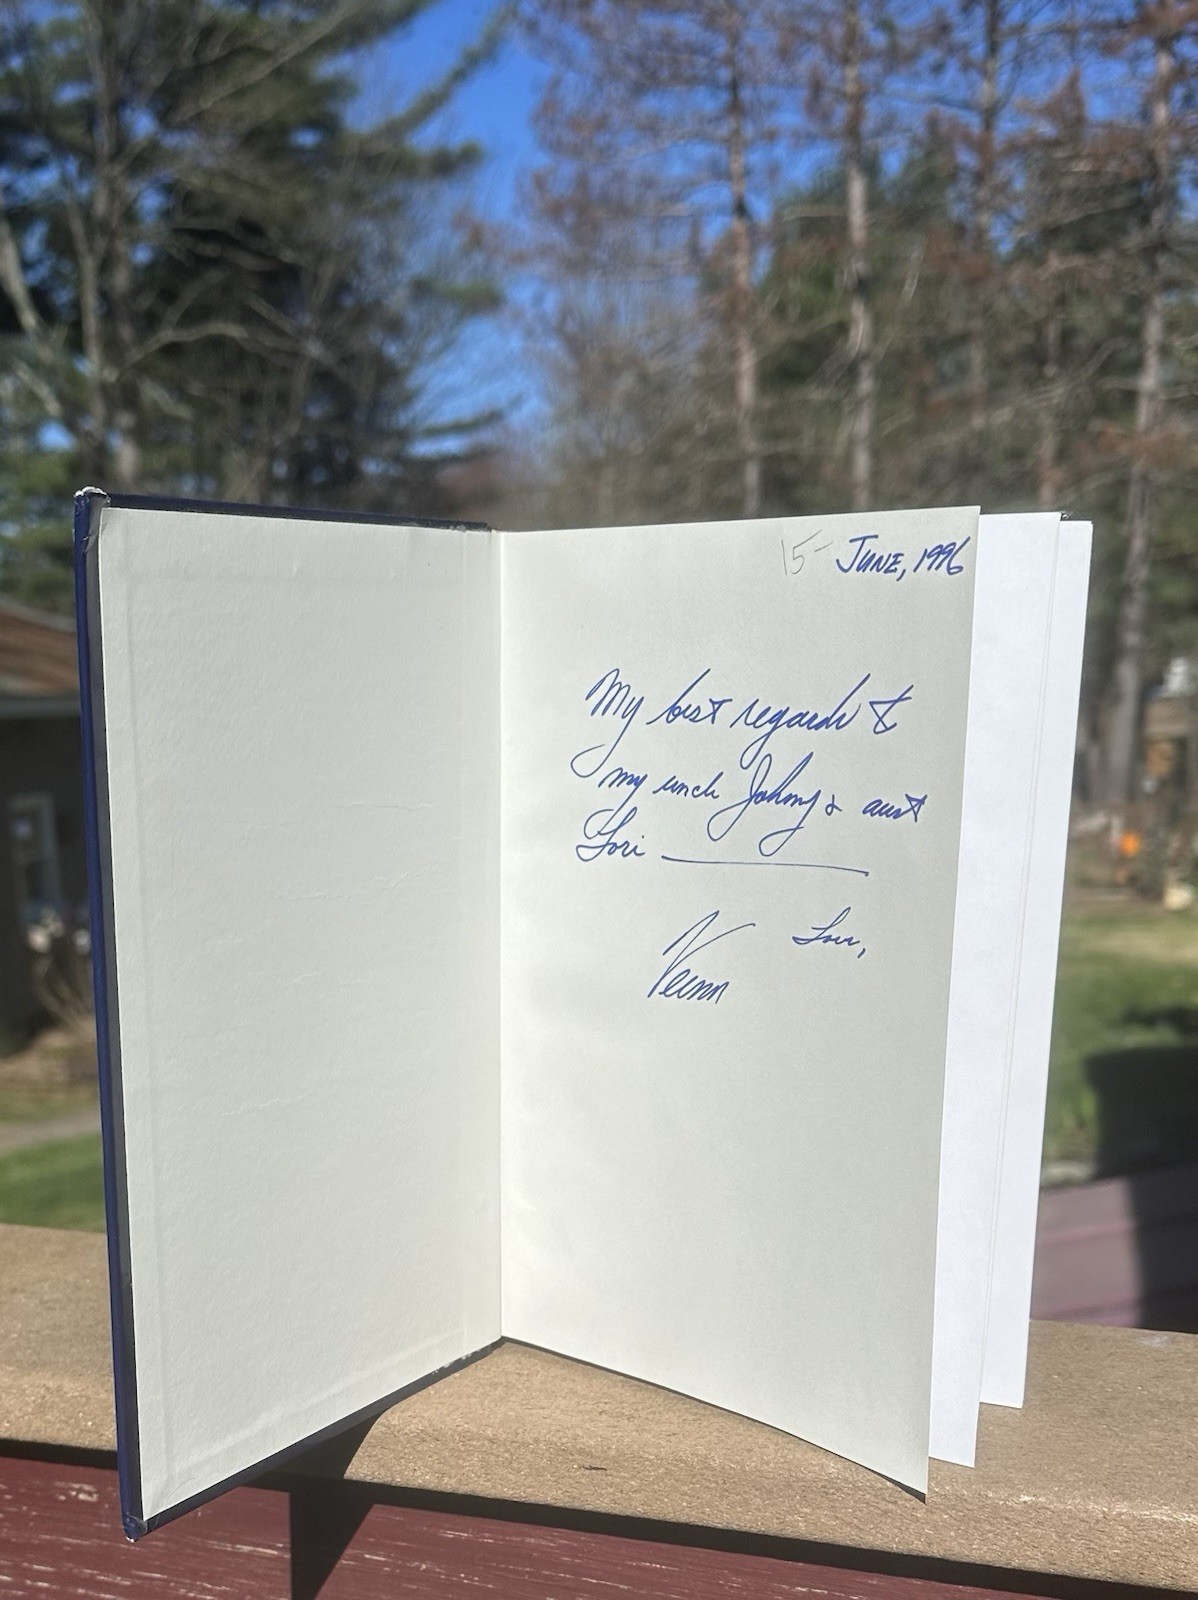 15- JUNE, 1996
My best regards to
my uncle Johnny & aunt
Lori
Love,